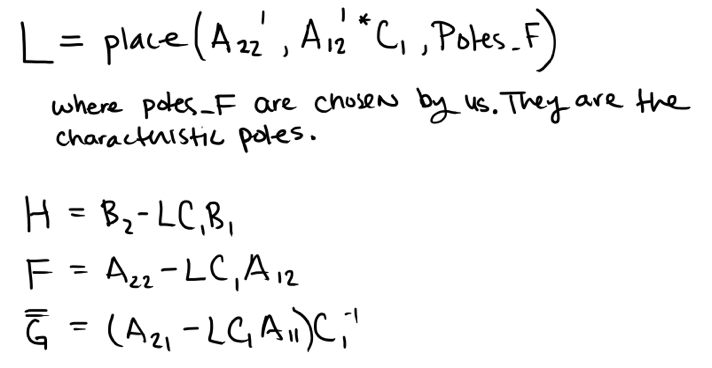 L = place(A₂₂', A₁₂'*C₁, Poles_F)
where poles_F are chosen by us. They are the
charactnistic poles.
H = B₂-LC₁B₁
F = A₂₂-LC₁A₁₂
G̿ = (A₂₁-LC₁A₁₁)C₁⁻¹